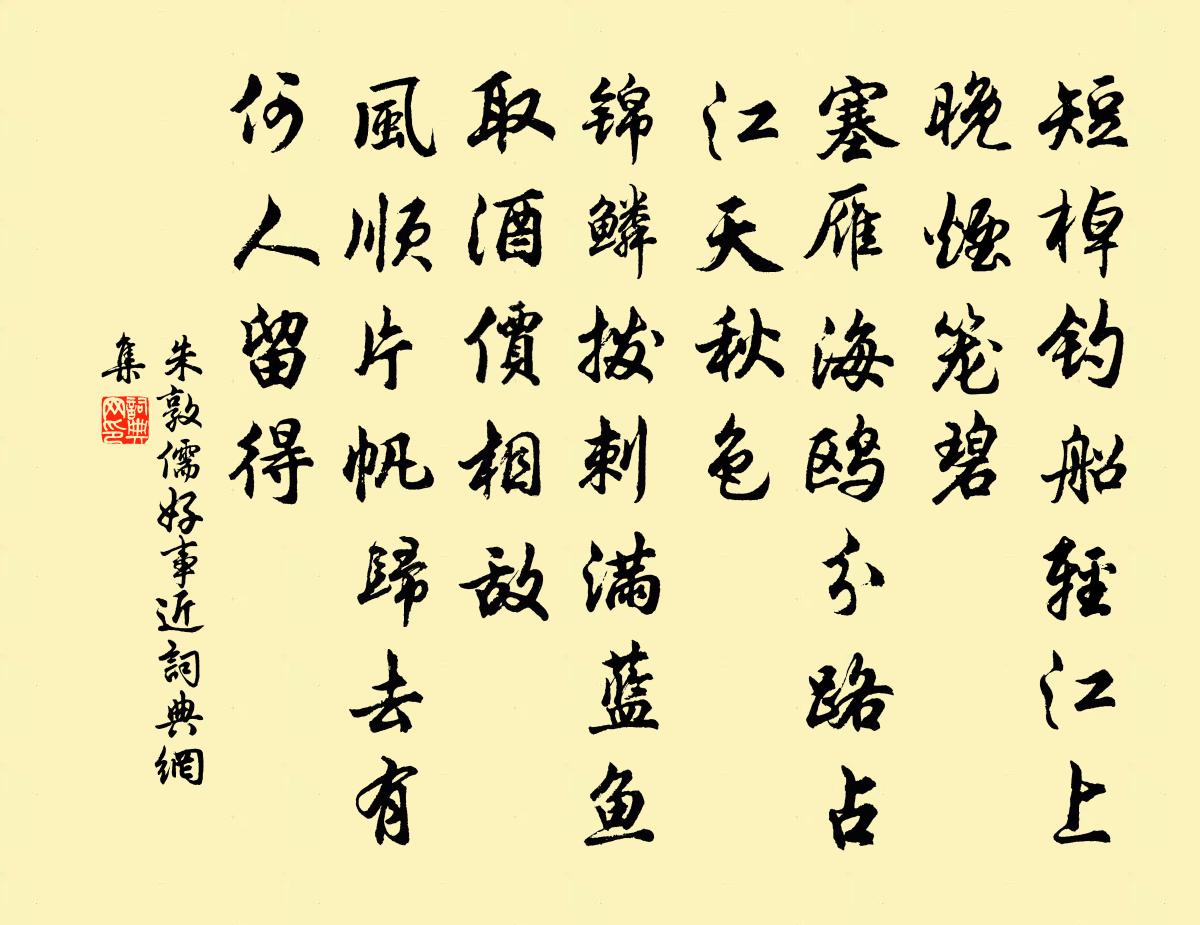 短棹钓船輕江上
晚煙笼碧
塞雁海鸥分路占
江天秋色
锦鳞拨刺满蓝魚
取酒價相敌
風顺片帆歸去有
何人留得
朱敦儒好事近詞典網
集
詞典
网印